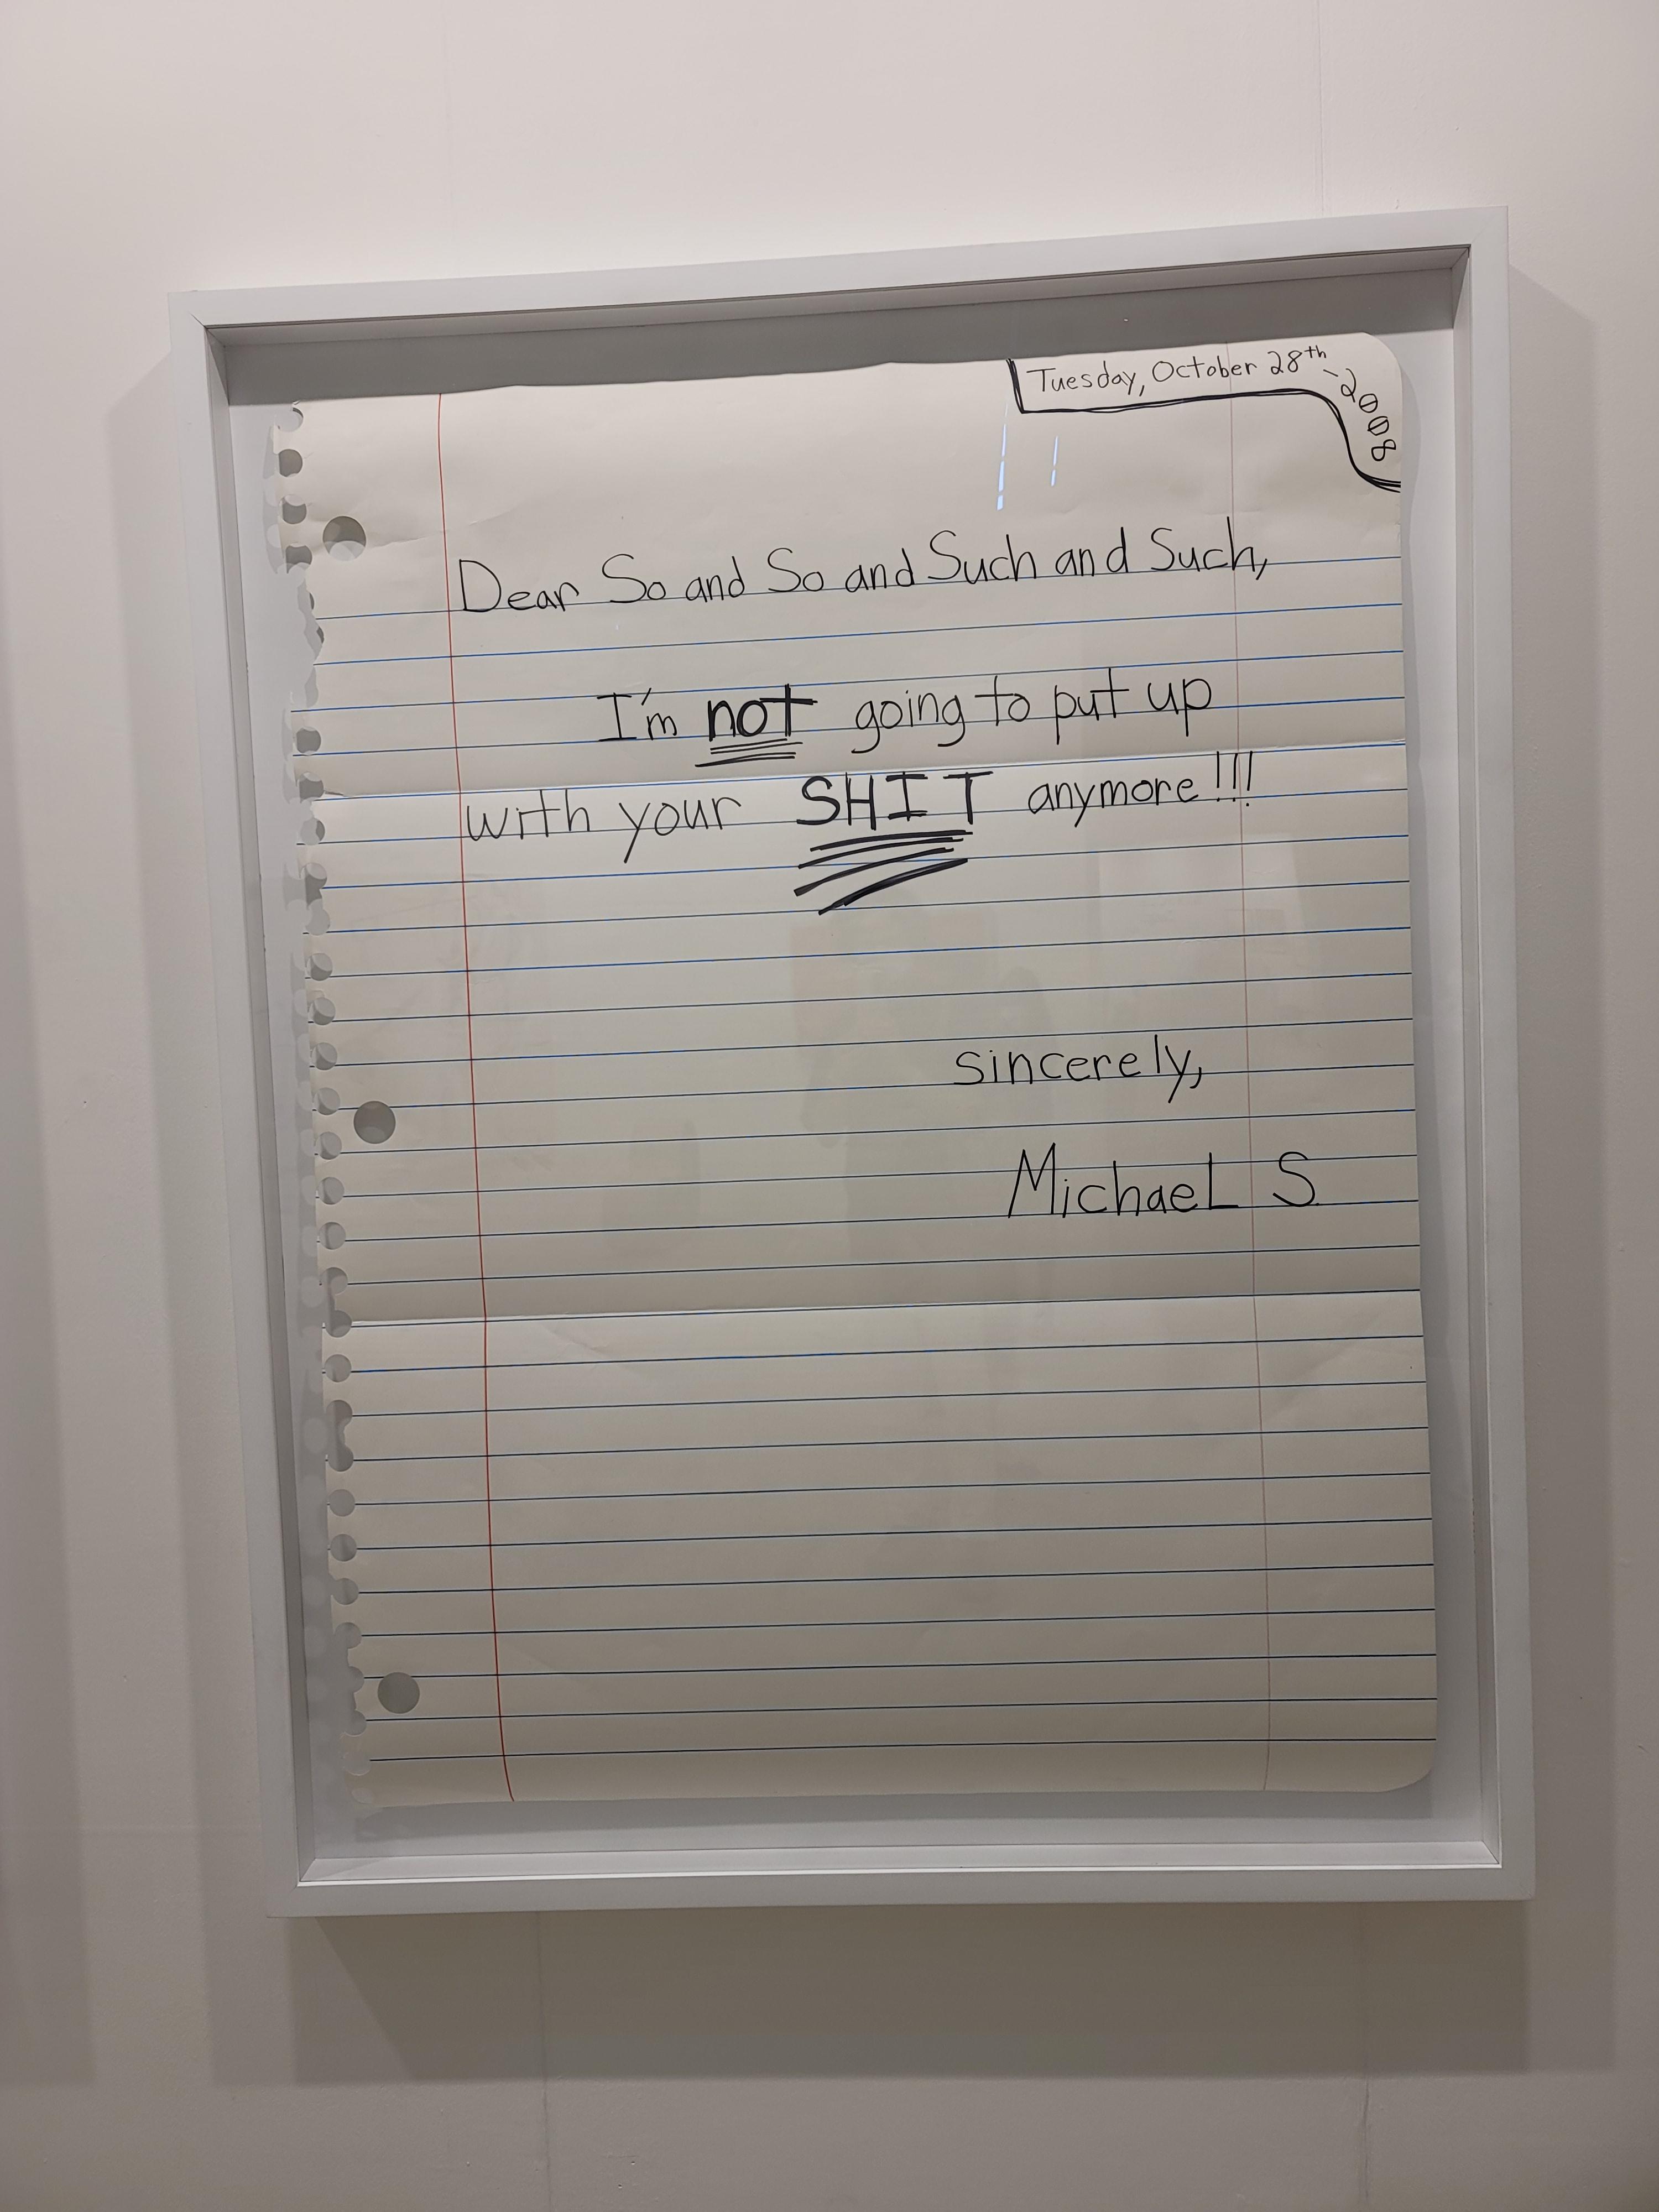 Tuesday, October 28th - 2008
Dear So and So and Such and Such,
I'm not going to put up
with your SHIT anymore!!!
sincerely,
MichaeL S